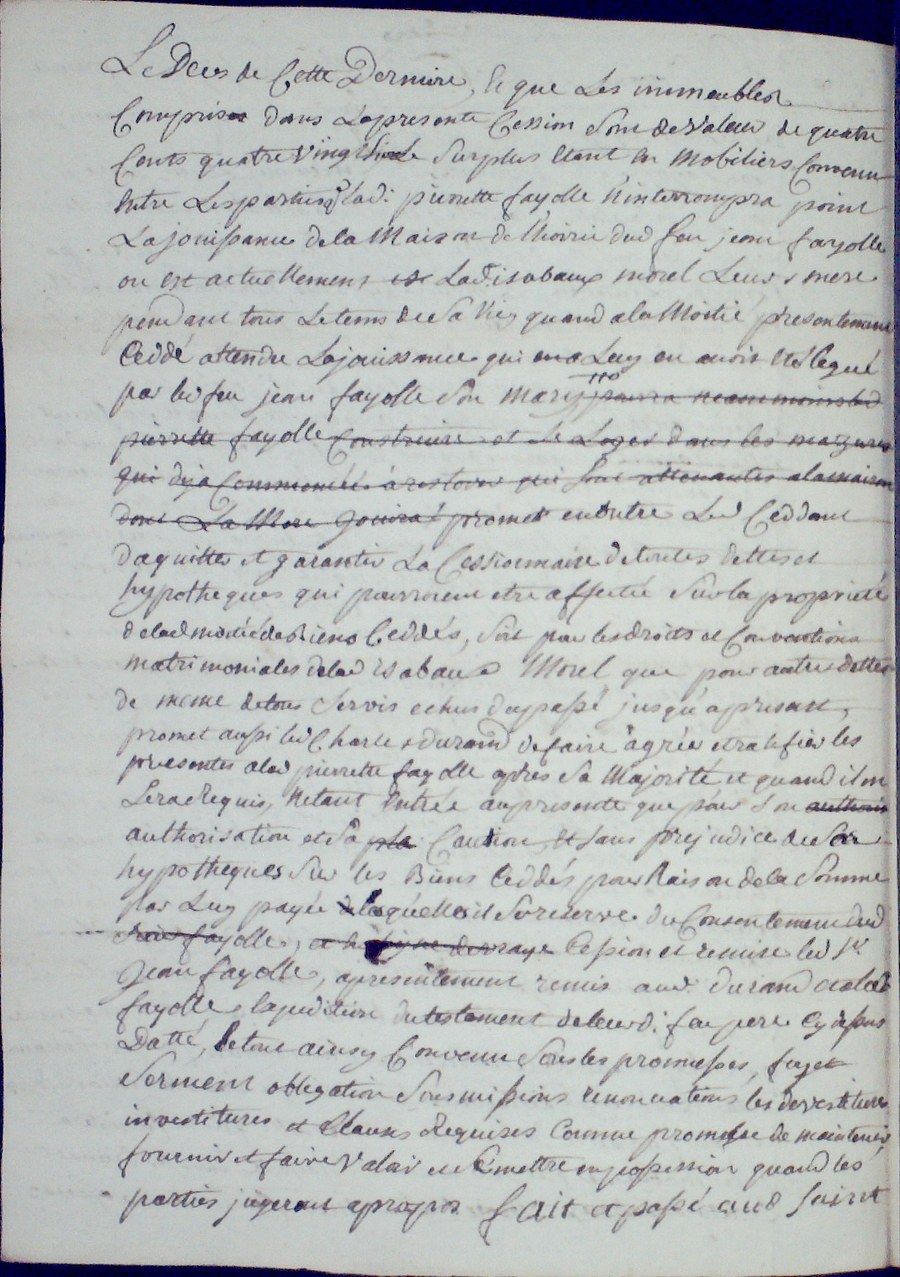 Le Deces de Cette Derniere, & que Les immeubles
Comprises dans Lapresente Cession Sont de Valeur de quatre
Cents quatre Vingt Surplus Etant En Mobiliers Convenu
Entre Lesparties q. Lad. pierrette fayolle N'interrompra point
La jouissance de la Maison de L'hoirie dud feu jean fayolle
ou est actuellement Lad. isabaux morel Leur mere
pendant tous Letems de Sa Vie, quand a la Moitié presentement
Ceddé attendu Lajouissance qui Luy en avoit Eté legué
par led feu jean fayolle Son mary pourra neammoins lad
pierrette fayolle Construire et se Loger dans les mazures
qui deja Commencés a restorer qui Sont attenantes alamaison
dont La Mere jouira promet enoutre Led Ceddant
D'aquitter et garantir La Cessionnaire detoutes dettes et
hypotheques qui pourroient etre affectés Surla proprieté
delad moitié des Biens Ceddés, soit pour lesdroits et Conventions
matrimoniales delad isabaux Morel que pour autres dettes
de meme detous Servis echus dupassé jusqu'apresent,
promet aussi led Charles durand defaire agréer et ratifier les
presentes alad pierrette fayolle apres Sa Majorité et quand il en
Sera Requis, N'etant Entrée aupresente que pour Son authoris
authorisation et Sa Caution, Et Sans prejudice de Son
hypotheques Sur les Biens Ceddés pour Raison dela Somme
par Luy payée alaquelle il Sereserve du Consentement dud
fayolle, Cession et remise led Sr.
Jean fayolle, apresentement remis aud. durand et alad
fayolle Lexpedition du testament deleurd. feu pere Cy dessus
Datté, Le tout ainsy Convenu Sousles promesses, foy et
Serment obligation Soumissions renonciations les devestitures
investitures et Clauses Requises Comme promesse de maintenir
fournir et faire Valoir et de mettre en possession quand les
parties jugeront apropos fait et passé aud Saint